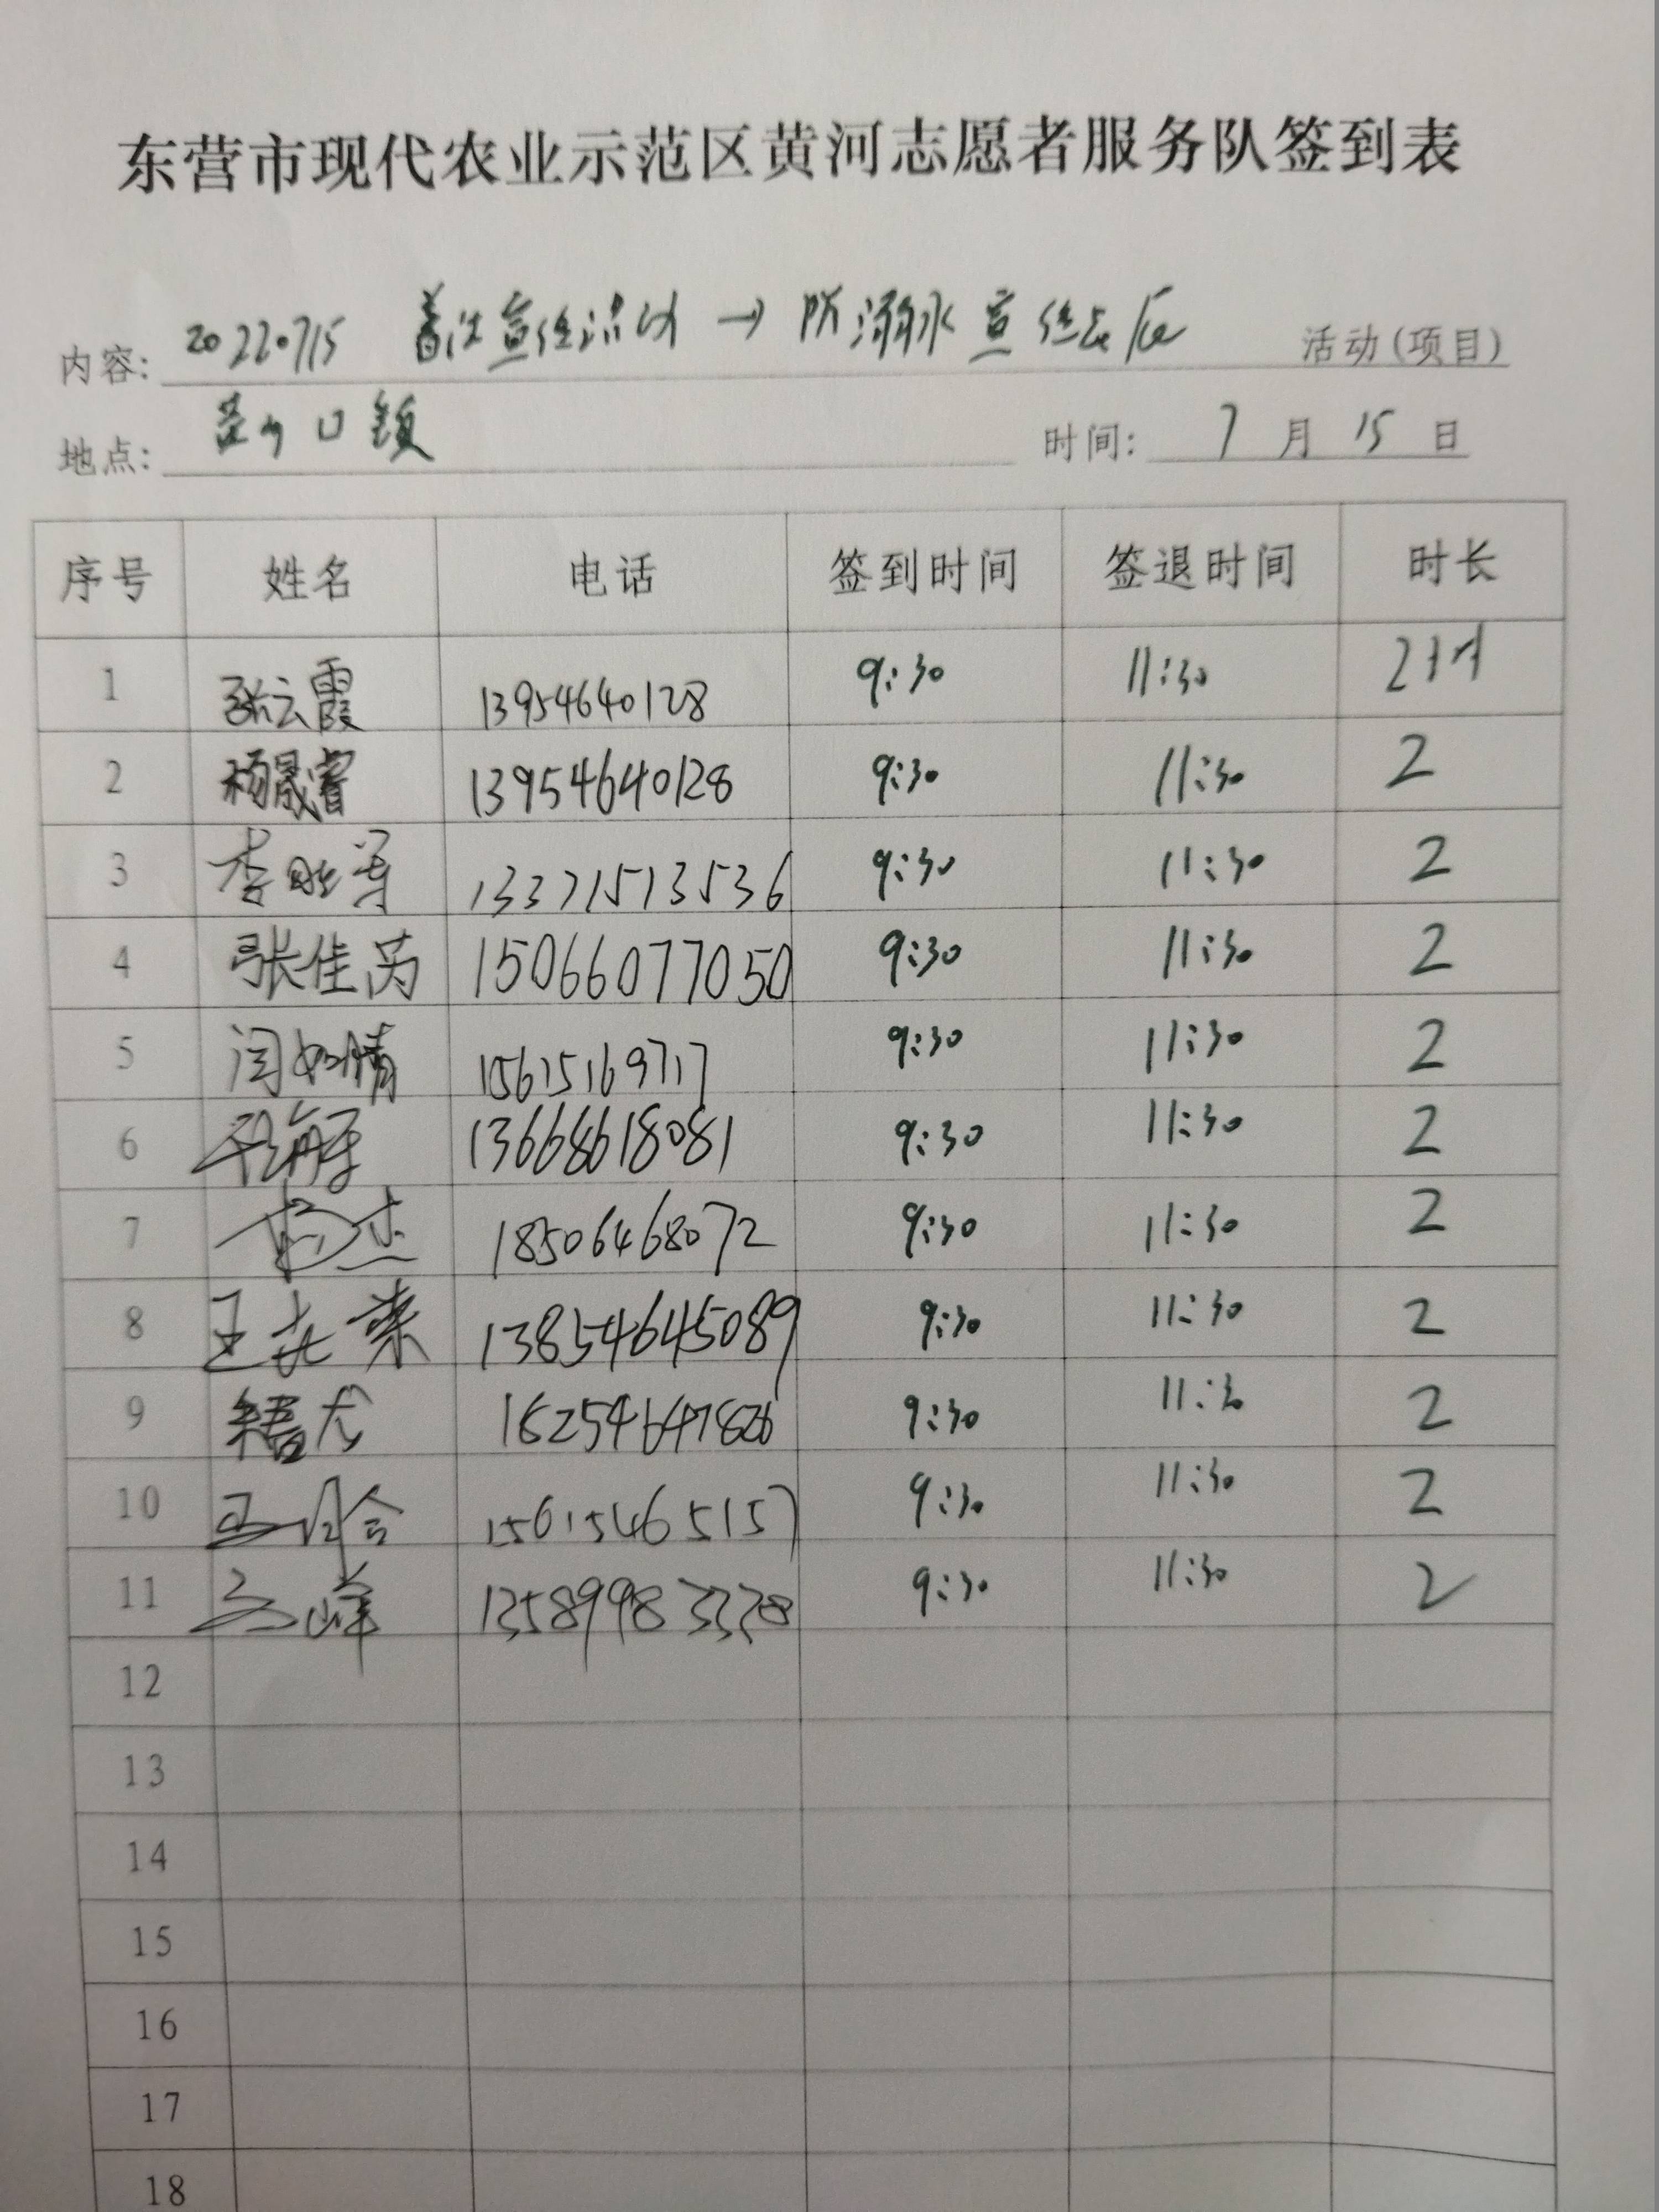 东营市现代农业示范区黄河志愿者服务队签到表
内容: 20220715 普法宣传活动 → 防溺水宣传志愿 活动(项目)
地点: 黄河口镇 时间: 7 月 15 日
序号 姓名 电话 签到时间 签退时间 时长
1 张云霞 13954640128 9:30 11:30 2小时
2 杨晟睿 13954640128 9:30 11:30 2
3 李 13371513536 9:30 11:30 2
4 张佳芮 15066077050 9:30 11:30 2
5 闫如晴 15615169717 9:30 11:30 2
6 13668618081 9:30 11:30 2
7 18506468072 9:30 11:30 2
8 王 13854645089 9:30 11:30 2
9 9:30 11:30 2
10 15615465157 9:30 11:30 2
11 峰 9:30 11:30 2
12
13
14
15
16
17
18